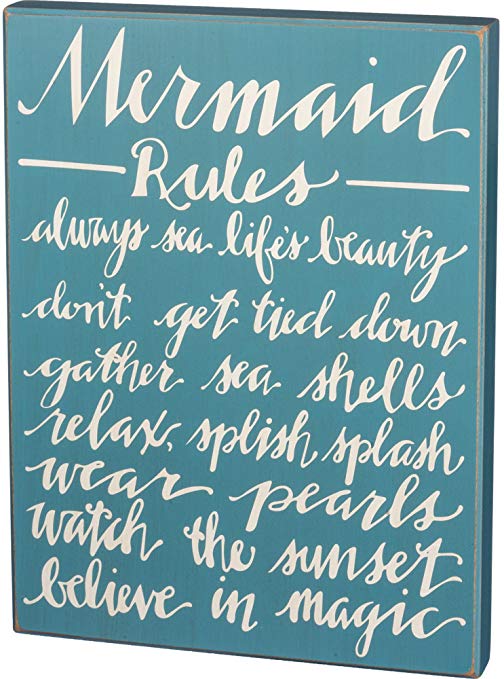 Mermaid
Rules
always sea life's beauty
don't get tied down
gather sea shells
relax, splish splash
wear pearls
watch the sunset
believe in magic